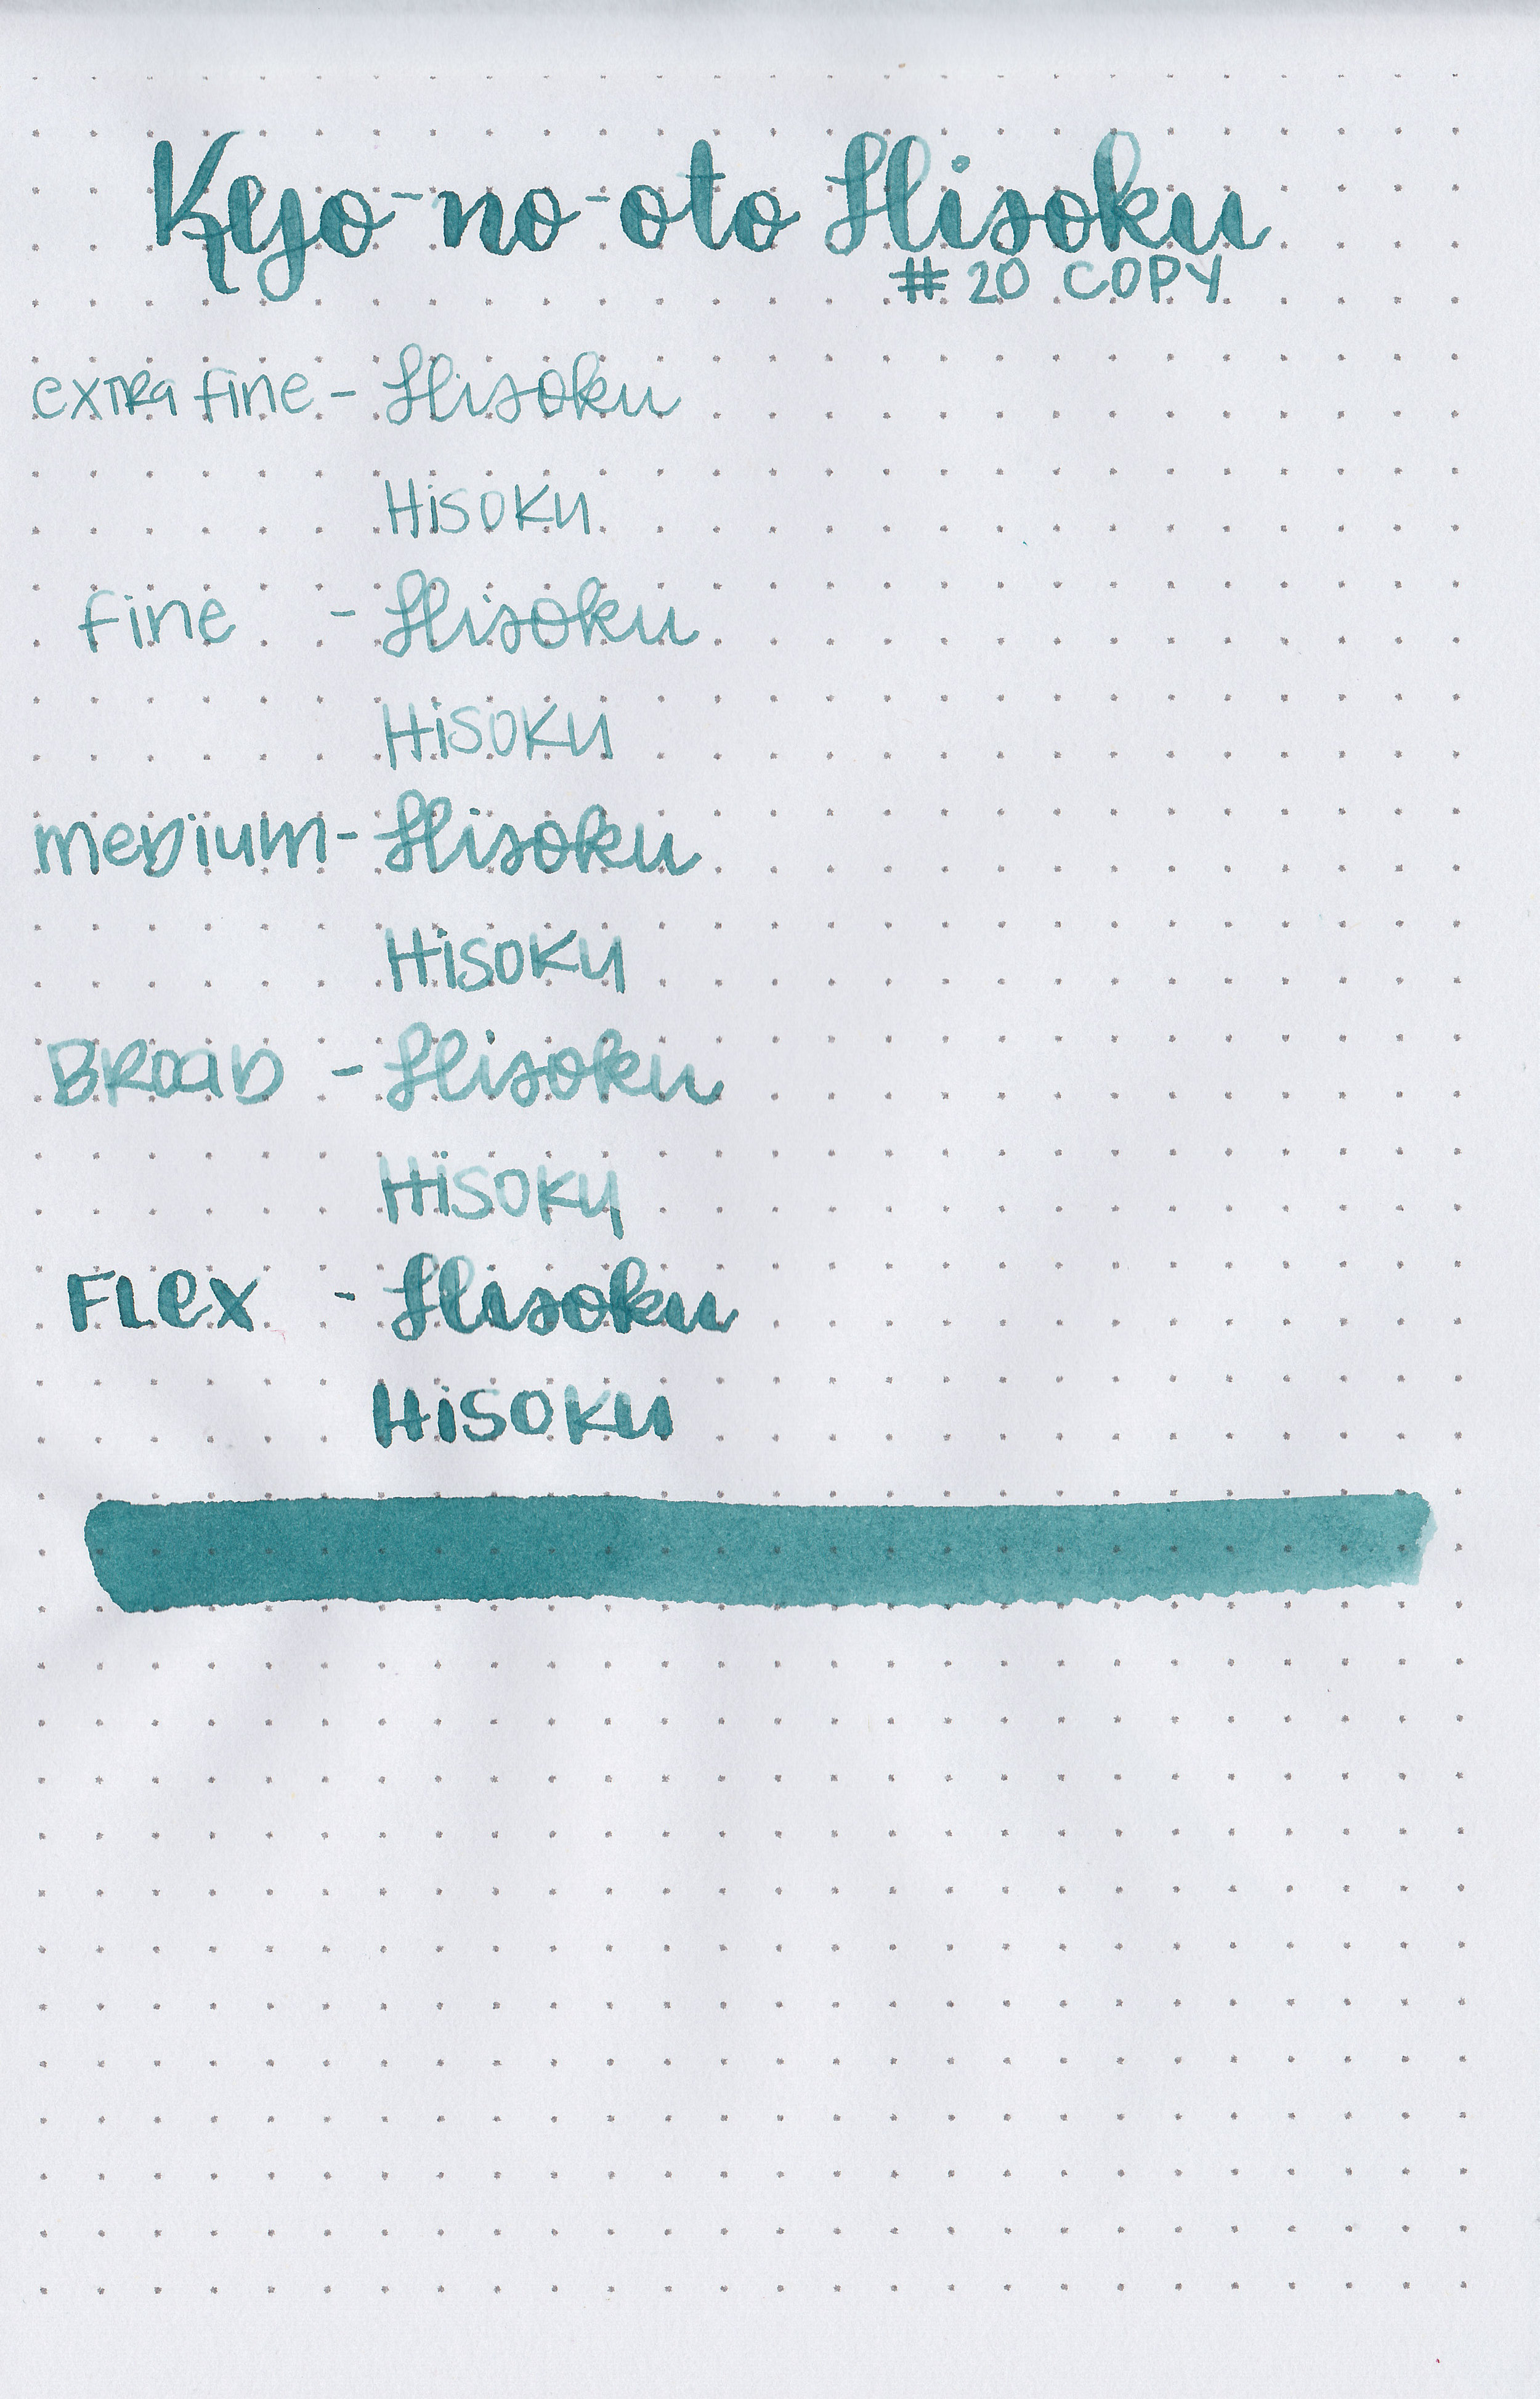 Kyo-no-oto Hisoku
#20 COPY
extra fine - Hisoku
Hisoku
fine - Hisoku
Hisoku
medium - Hisoku
Hisoku
Broad - Hisoku
Hisoku
Flex - Hisoku
Hisoku